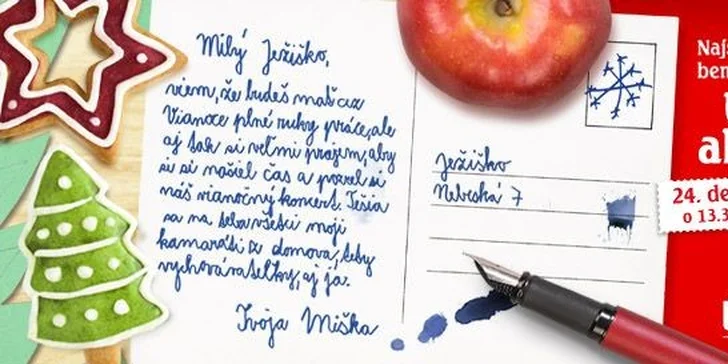 Milý Ježiško,
viem, že budeš mať cez
Vianoce plné ruky práce, ale
aj tak si veľmi prajem, aby
si si našiel čas a pozrel si
náš vianočný koncert. Tešia
sa na teba všetci moji
kamaráti z domova, tety
vychovávateľky, aj ja.
Tvoja Miška
Ježiško
Nebeská 7
Naj
ben
24. de
o 13.3